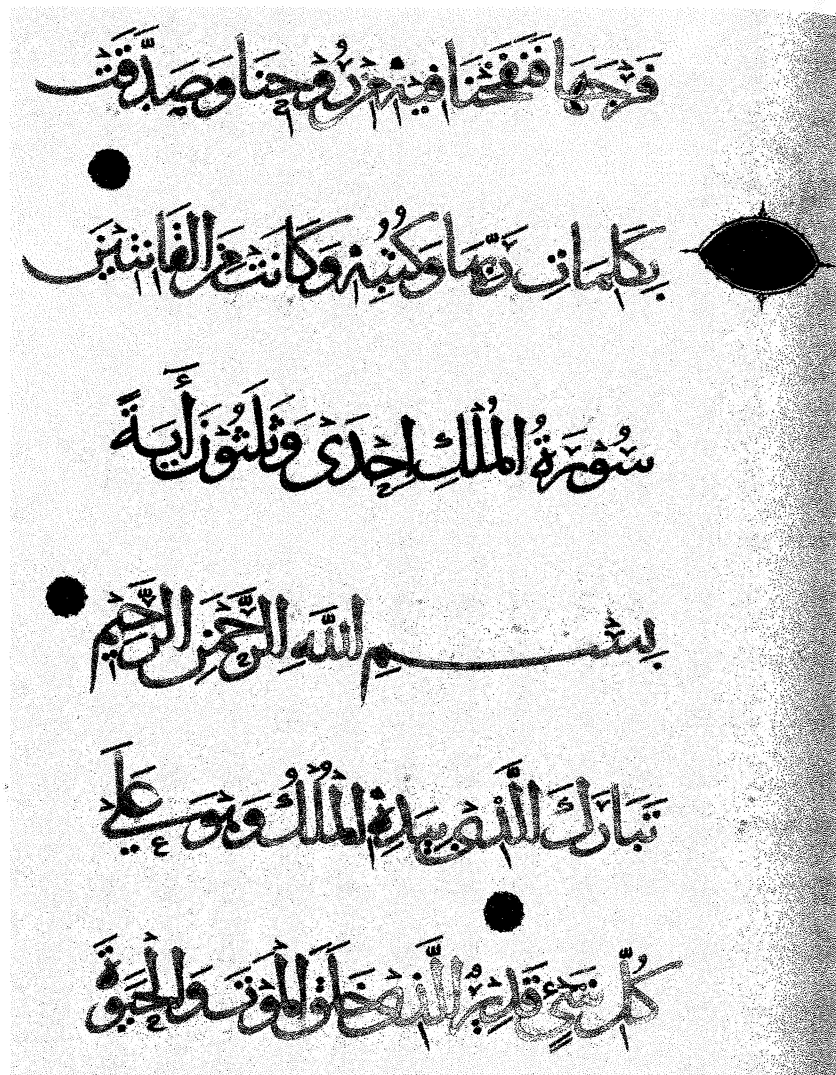 فَرْجَهَا فَنَفَخْنَا فِيهِ مِنْ رُوحِنَا وَصَدَّقَتْ
بِكَلِمَاتِ رَبِّهَا وَكُتُبِهِ وَكَانَتْ مِنَ الْقَانِتِينَ
سُورَةُ الْمُلْكِ اِحْدَى وَثَلٰثُونَ أٰيَةً
بِسْمِ اللَّهِ الرَّحْمٰنِ الرَّحِيمِ
تَبَارَكَ الَّذِي بِيَدِهِ الْمُلْكُ وَهُوَ عَلَىٰ
كُلِّ شَيْءٍ قَدِيرٌ الَّذِي خَلَقَ الْمَوْتَ وَالْحَيٰوةَ